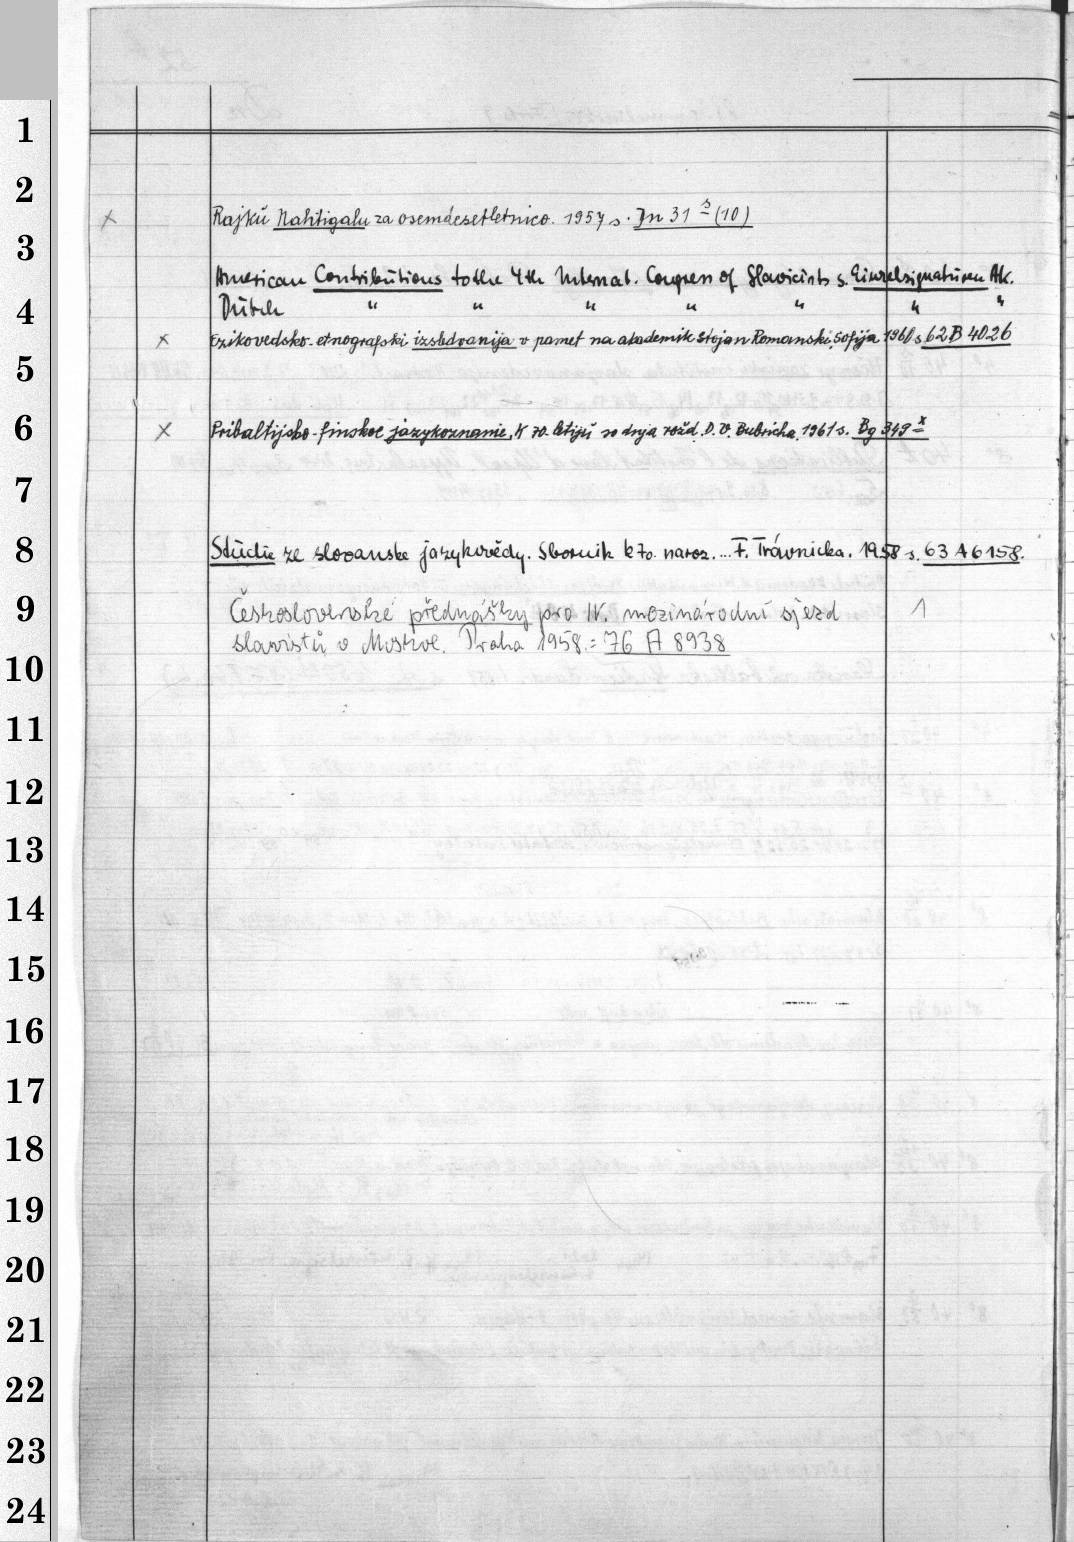 1
2
× Rajkŭ Nahtigalu za osemdesetletnico. 1957 s. Jn 31 (10)
3
American Contribŭtions to the 4th Internat. Congress of Slavicists s. Einzelsignatŭren Ak.
4
Dŭtch " " " " " " "
× Ezikovedsko-etnografski izsledvanija v pamet na akademik Stojan Romanski, Sofija 1960 s. 62 B 4026
5
6
× Pribaltijsko-finskoe jazykoznanie, K 70. letijŭ so dnja rožd. D. V. Bubricha, 1961 s. Bg 349 x
7
8
Stŭdie ze slovanske jazykovědy. Sborník k 70. naroz. ... F. Trávnicka. 1958 s. 63 A 6158.
9
Československé přednášky pro IV. mezinárodní sjezd 1
slavistů v Moskve. Praha 1958.= 76 A 8938
10
11
12
13
14
15
16
17
18
19
20
21
22
23
24